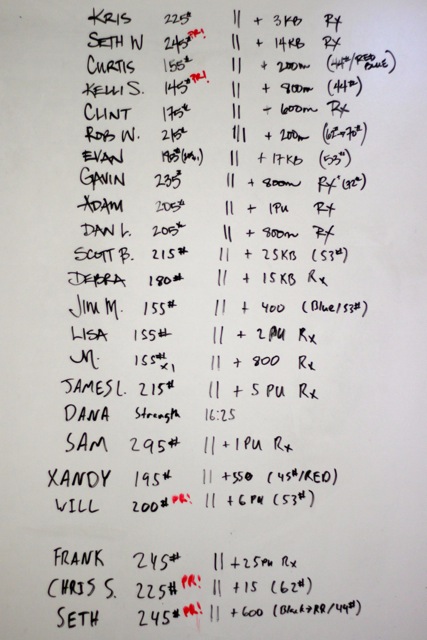 KRIS 225# || + 3KB Rx
SETH W 245# PR! || + 14KB Rx
CURTIS 155# || + 200m (44#/RED BLUE)
KELLI S. 145# PR! || + 800m (44#)
CLINT 175# || + 600m Rx
ROB W. 215# ||| + 200m (62#→70#)
EVAN 195# || + 17KB (53#)
GAVIN 235# || + 800m Rx+ (32#)
ADAM 205# || + 1PU Rx
DAN L. 205# || + 800m Rx
SCOTT B. 215# || + 25KB (53#)
DEBRA 180# || + 15KB Rx
JIM M. 155# || + 400 (Blue/53#)
LISA 155# || + 2 PU Rx
155# x1 || + 800 Rx
JAMES L. 215# || + 5 PU Rx
DANA Strength 16:25
SAM 295# || + 1PU Rx
XANDY 195# || +550 (45#/RED)
WILL 200# PR! || + 6 PU (53#)
FRANK 245# || +25PU Rx
CHRIS S. 225# PR! || +15 (62#)
SETH 245# PR! || + 600 (Black→RR/44#)